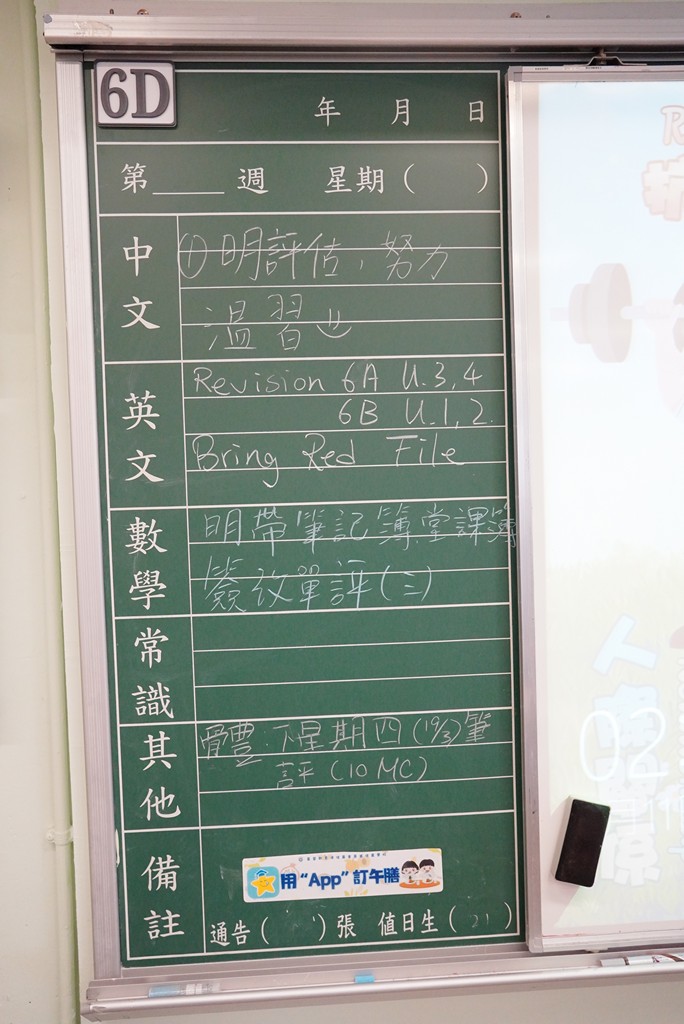 6D
年 月 日
第____週 星期( )
中文
①明評估，努力
溫習
英文
Revision 6A U.3,4
6B U.1,2.
Bring Red File
數學
明帶筆記簿堂課簿
簽改單評(三)
常識
其他
體:下星期四(19/3)筆
評(10 MC)
備註
用“App”訂午膳
通告( )張 值日生(21)
02